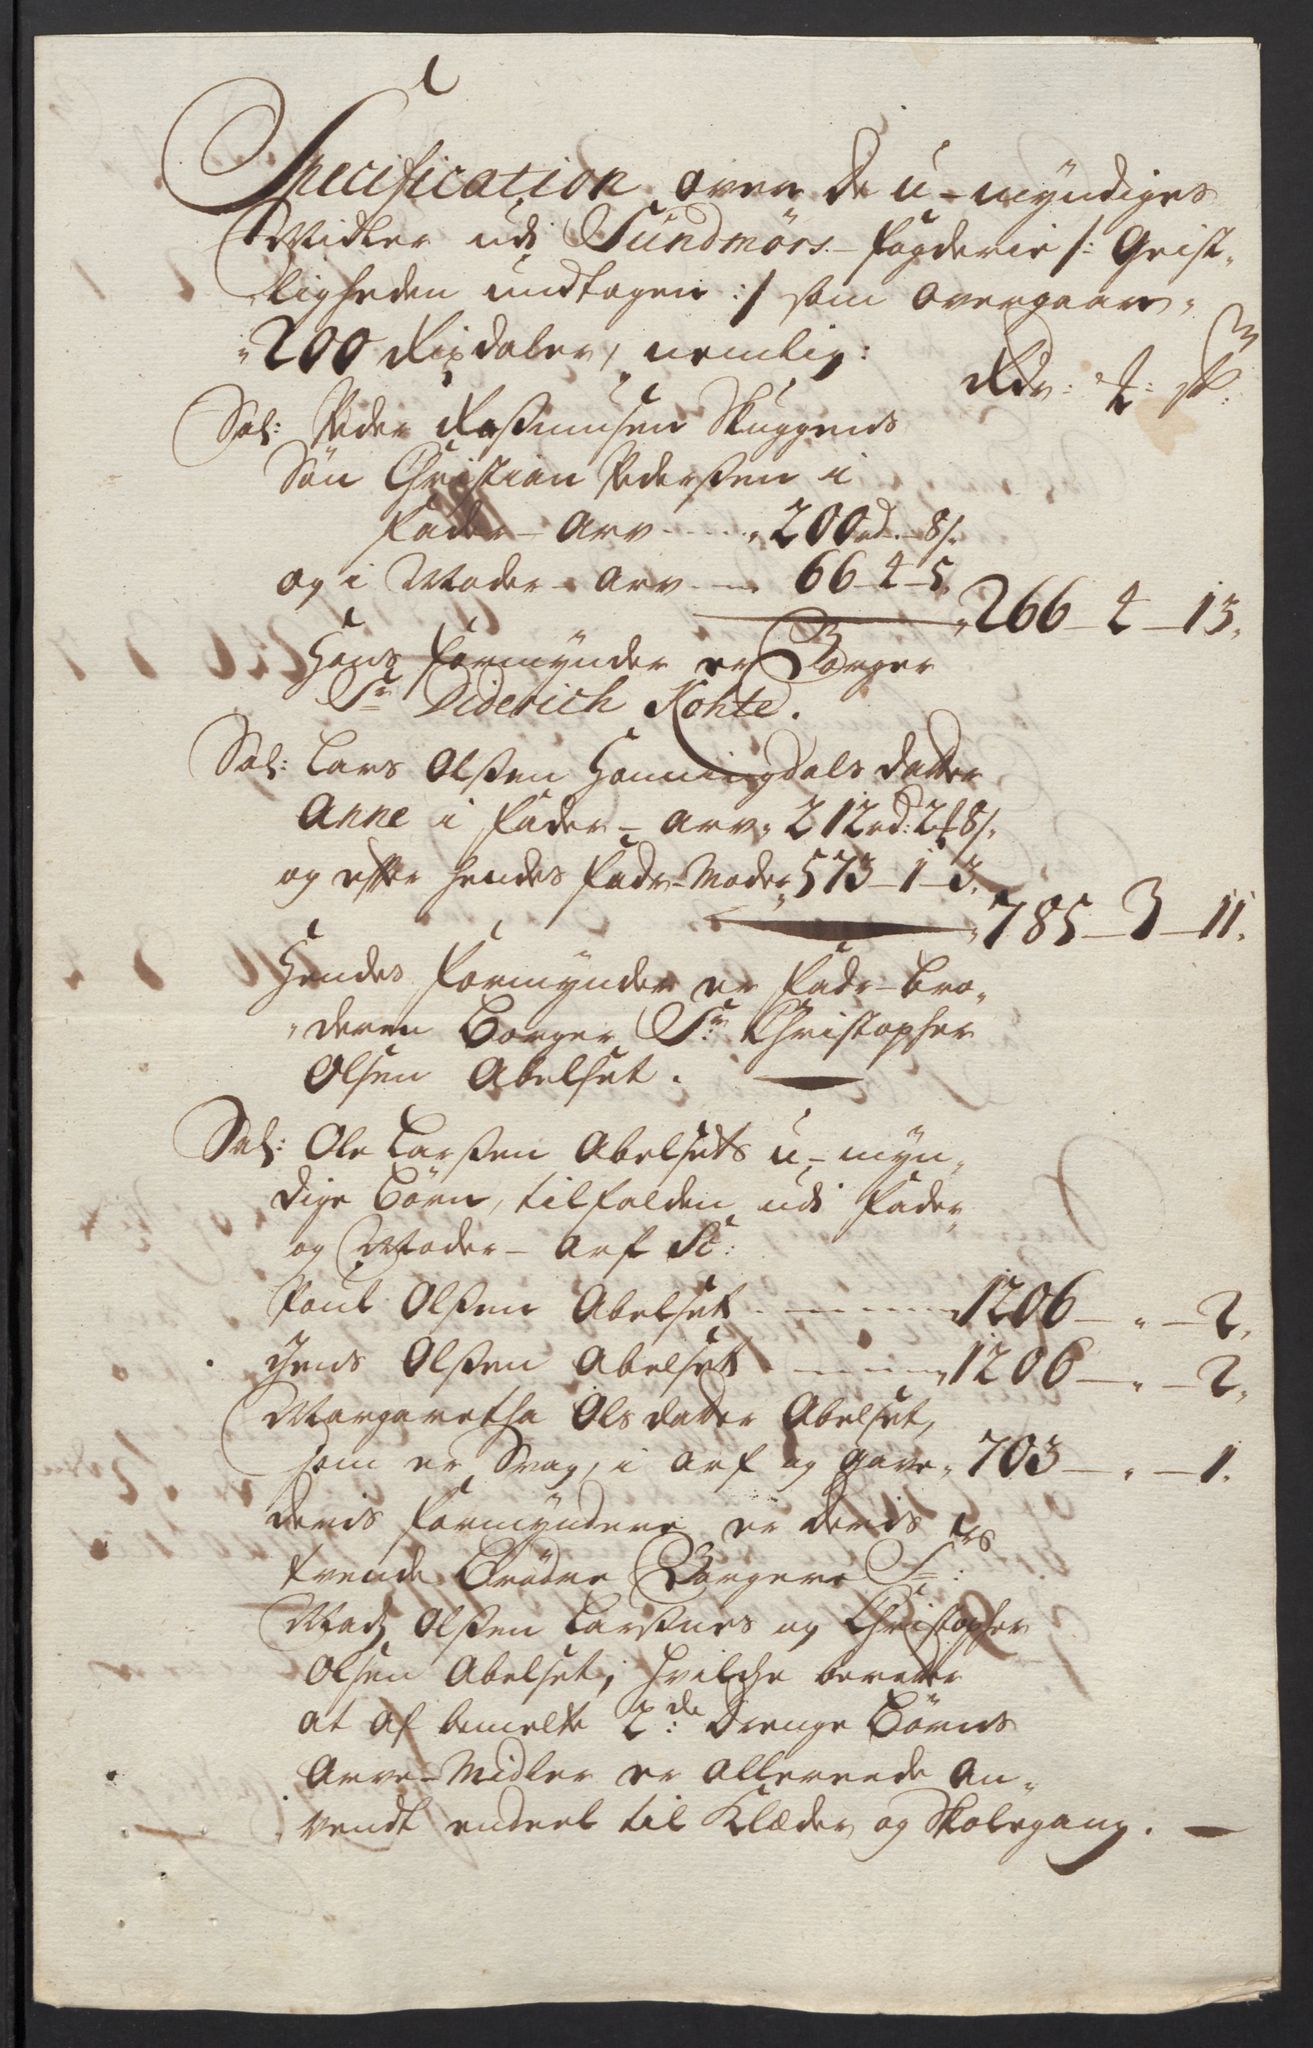 Specification over de u-myndiges
Midler udi Sündmörs-fogderie /: Geist-
ligheden undtagen :/ som overgaar
200 Rixdaler, nemlig:
Rdr: : s:
Sal: Peder Rasmusen Skuggens
Sön Christian Pedersen i
Fader-Arv - - - 200rd. - 8s.
og i Moder-Arv - - 66-4-5. 266-4-13.
Hans formynder er Borger
Sr Diderich Kohte.
Sal: Lars Olsen Honningdals datter
Anne i Fader-Arv 212rd: 2 8s.
og effter hendes Fader-Moder 573-1-3. 785-3-11.
Hendes formynder er Fader-bro-
deren Borger Sr: Christopher
Olsen Abelset.
Sal: Ole Larsen Abelsets u-myn-
dige Börn, tilfalden udi Fader
og Moder-Arf Sc:
Poul Olsen Abelset - - - 1206 - " - 2.
Jens Olsen Abelset - - - 1206 - " - 2.
Margaretha Olsdatter Abelset,
som er Svag, i Arf og Gave 703 - " - 1.
deris formyndere er deris
tvende Brödre Borgere Srs:
Mads Olsen Larsnes og Christopher
Olsen Abelset, hvilche beretter
at af bemelte 2de: drenge Börns
Arve-Midler er allereede an-
vendt endeel til Klæder og Skolegang.